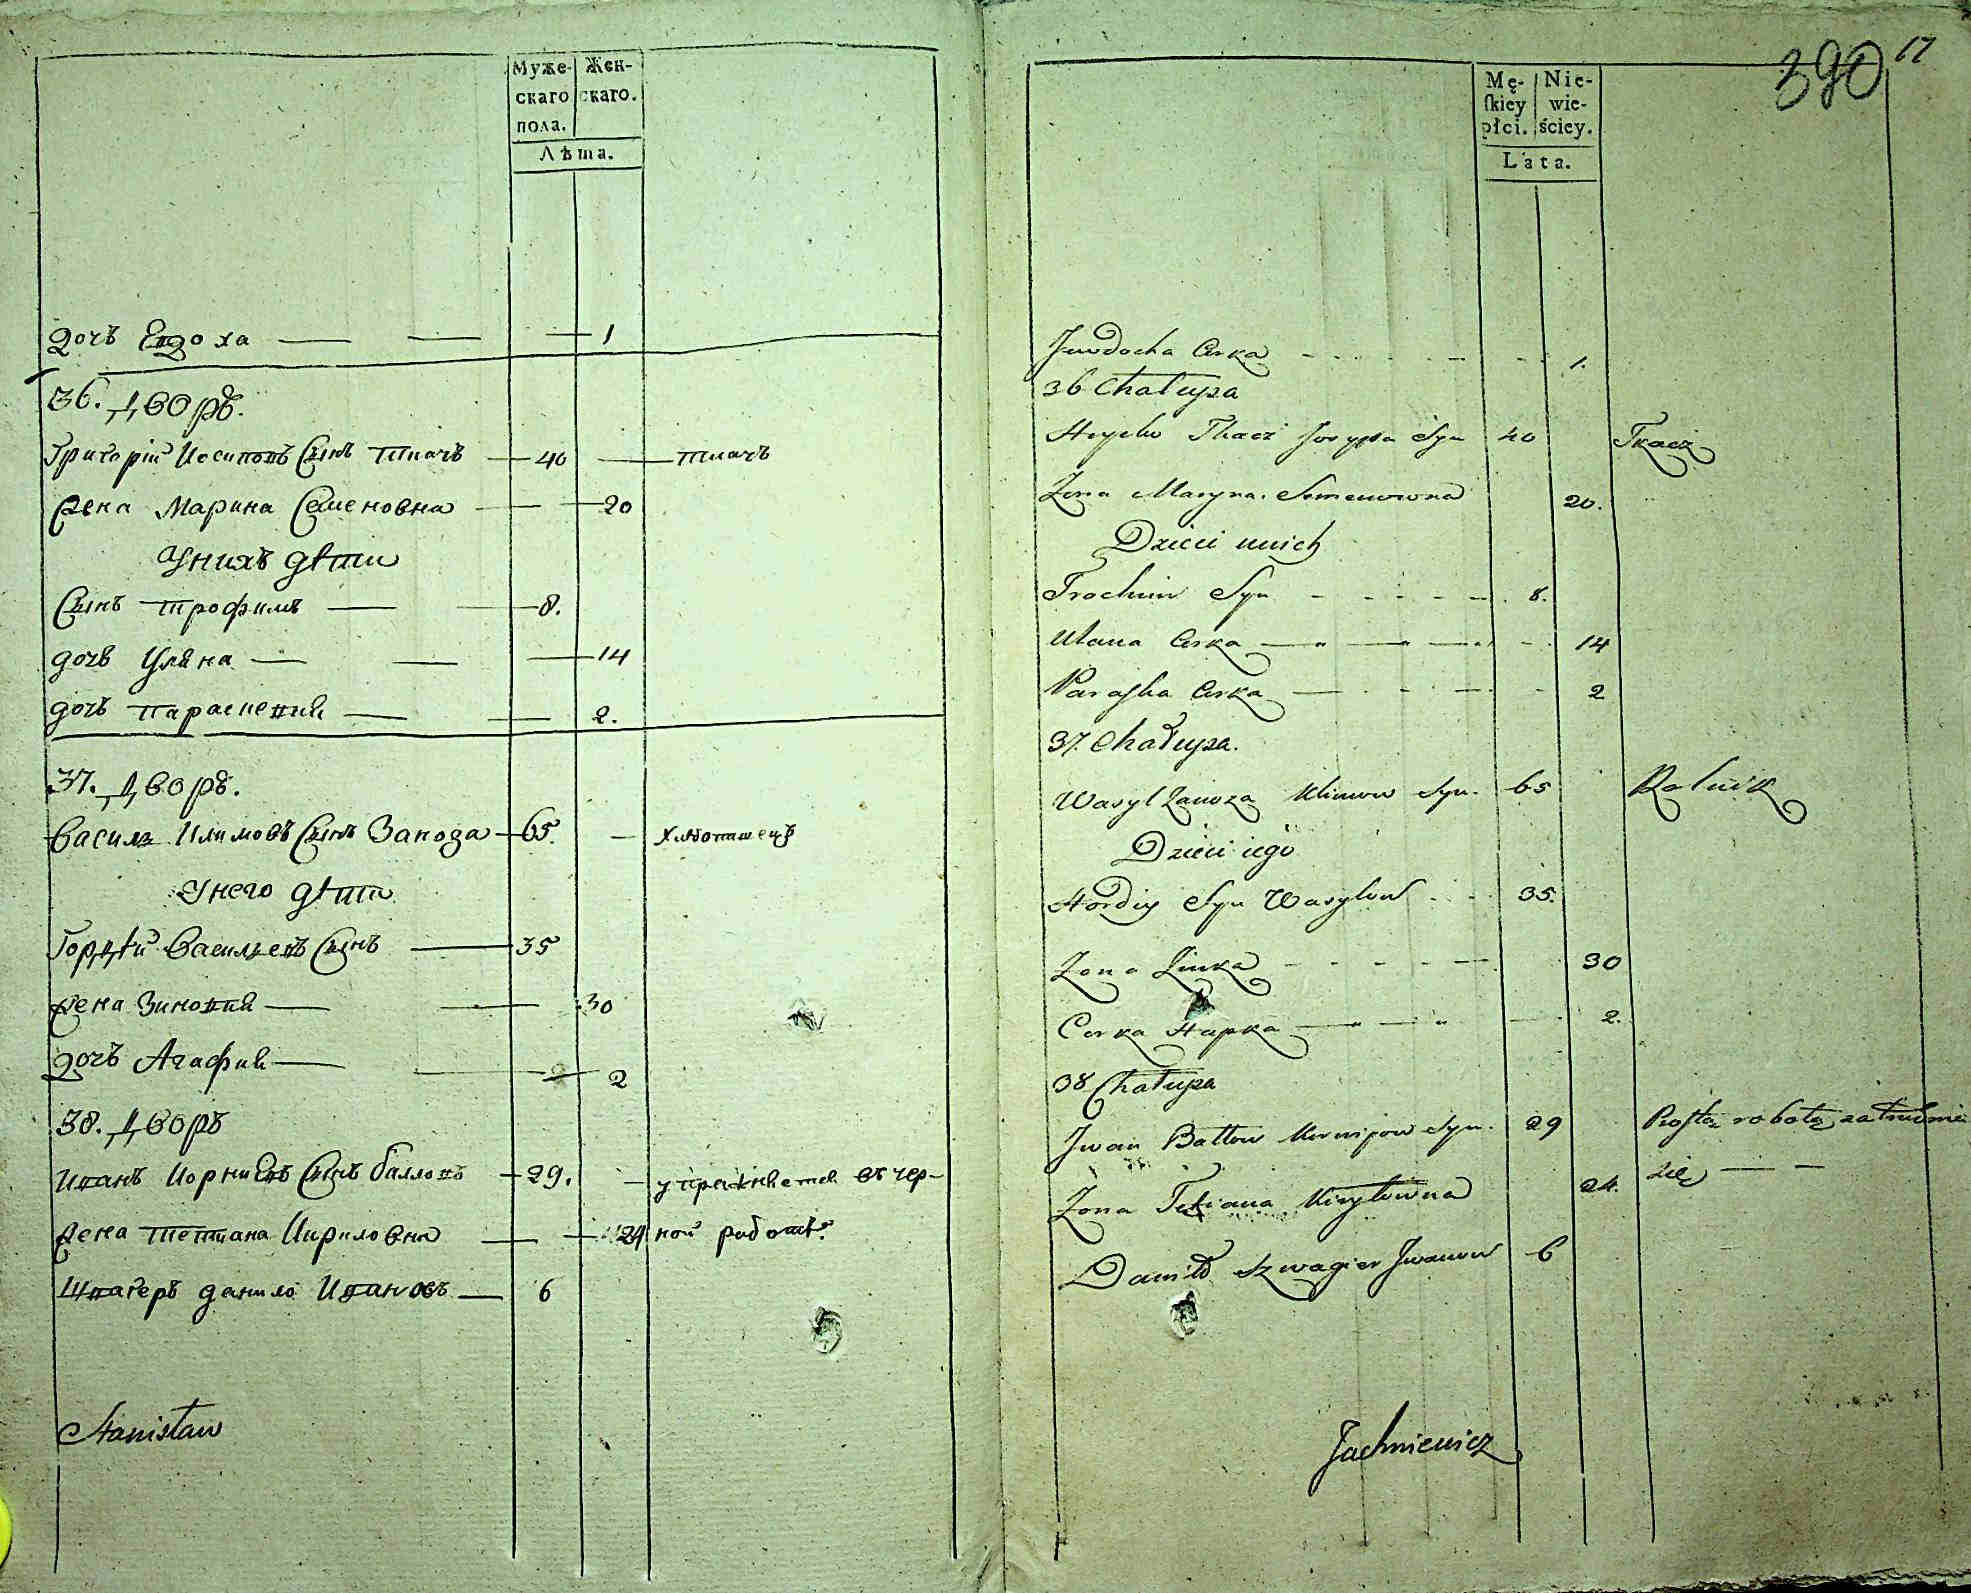 Муже-
скаго
пола.
Жен-
скаго.
Лѣта.
дочь Евдоха — — — 1
36. Дворъ.
Григорій Иосиповъ Сынъ Ткачъ — 40 — ткачъ
Жена Марина Семеновна — 20
Унихъ дѣти
Сынъ Трофимъ — — 8.
дочь Уляна — — — 14
дочь Параскевия — — 2.
37. Дворъ.
Василь Климовъ Сынъ Заноза — 65. — хлѣбопашецъ
Унего дѣти
Гордѣй Васильевъ Сынъ — 35
Жена Зиновия — — 30
Дочь Агафия — — 2
38. Дворъ
Иванъ Корниевъ Сынъ балловъ — 29. — упражняется въ чер-
Жена Тетиана Кириловна — — 24 ной работѣ.
Швагеръ данило Ивановъ — 6
Stanisław
390 17
Mę-
skiey
płci.
Nie-
wie-
ściey.
Lata.
Juwdocha Corka 1.
36 Chałupa
Hryćko Tkacz Josypow Syn 40 Tkacz
Zona Maryna Semenowna 20.
Dzieci unich
Trochim Syn 8.
Ulana Corka 14
Paraska Corka 2
37. Chałupa.
Wasyl Zanoza Klimow Syn. 65 Rolnik
Dzieci iego
Hordiy Syn Wasylow 35.
Zona Zinka 30
Corka Hapka 2.
38 Chałupa
Jwan Battow Kornijow Syn. 29 Prostą robotą zatrudnia
Zona Tetiana Kiryłowna 24. się — —
Daniło Szwagier Jwanow 6
Jachniewicz